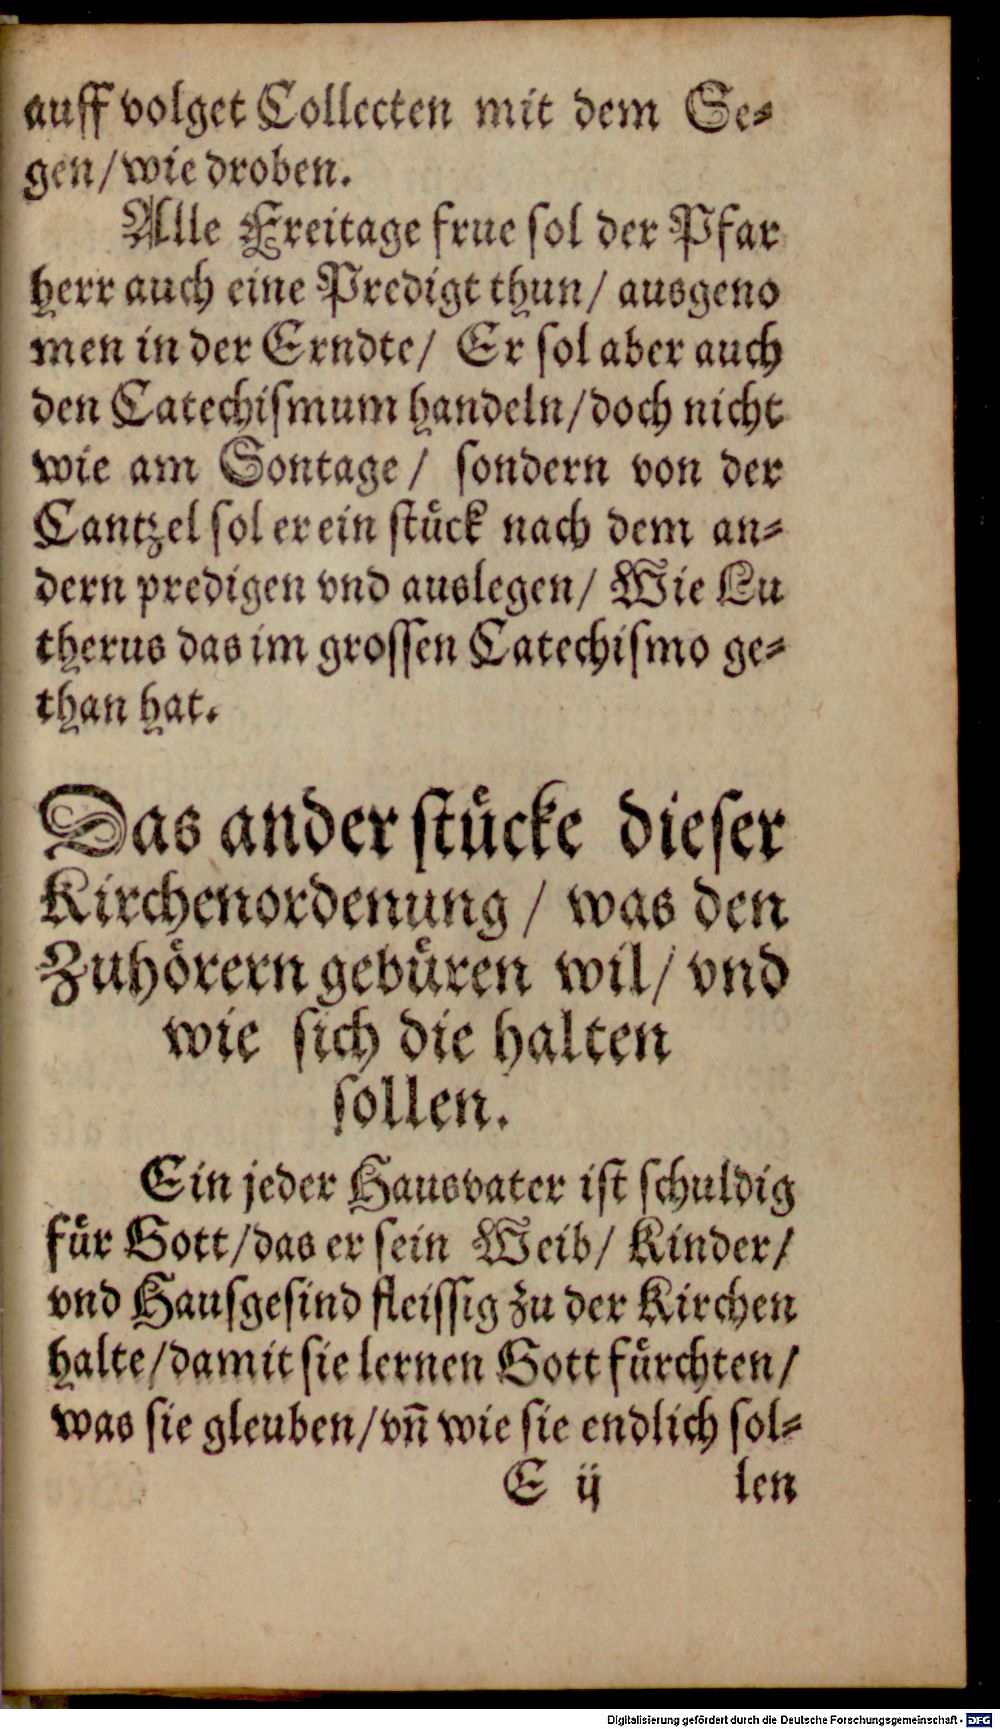 auff volget Collecten mit dem Se-
gen/ wie droben.
Alle Freitage frue sol der Pfar
herr auch eine Predigt thun/ ausgeno
men in der Erndte/ Er sol aber auch
den Catechismum handeln/ doch nicht
wie am Sontage/ sondern von der
Cantzel sol er ein stuͤck nach dem an-
dern predigen vnd auslegen/ Wie Lu
therus das im grossen Catechismo ge-
than hat.
Das ander stuͤcke dieser
Kirchenordenung/ was den
Zuhoͤrern gebuͤren wil/ vnd
wie sich die halten
sollen.
Ein jeder Hausvater ist schuldig
fuͤr Gott/ das er sein Weib/ Kinder/
vnd Hausgesind fleissig zu der Kirchen
halte/ damit sie lernen Gott fuͤrchten/
was sie gleuben/ vn̄ wie sie endlich sol-
E ij len
Digitalisierung gefördert durch die Deutsche Forschungsgemeinschaft - DFG